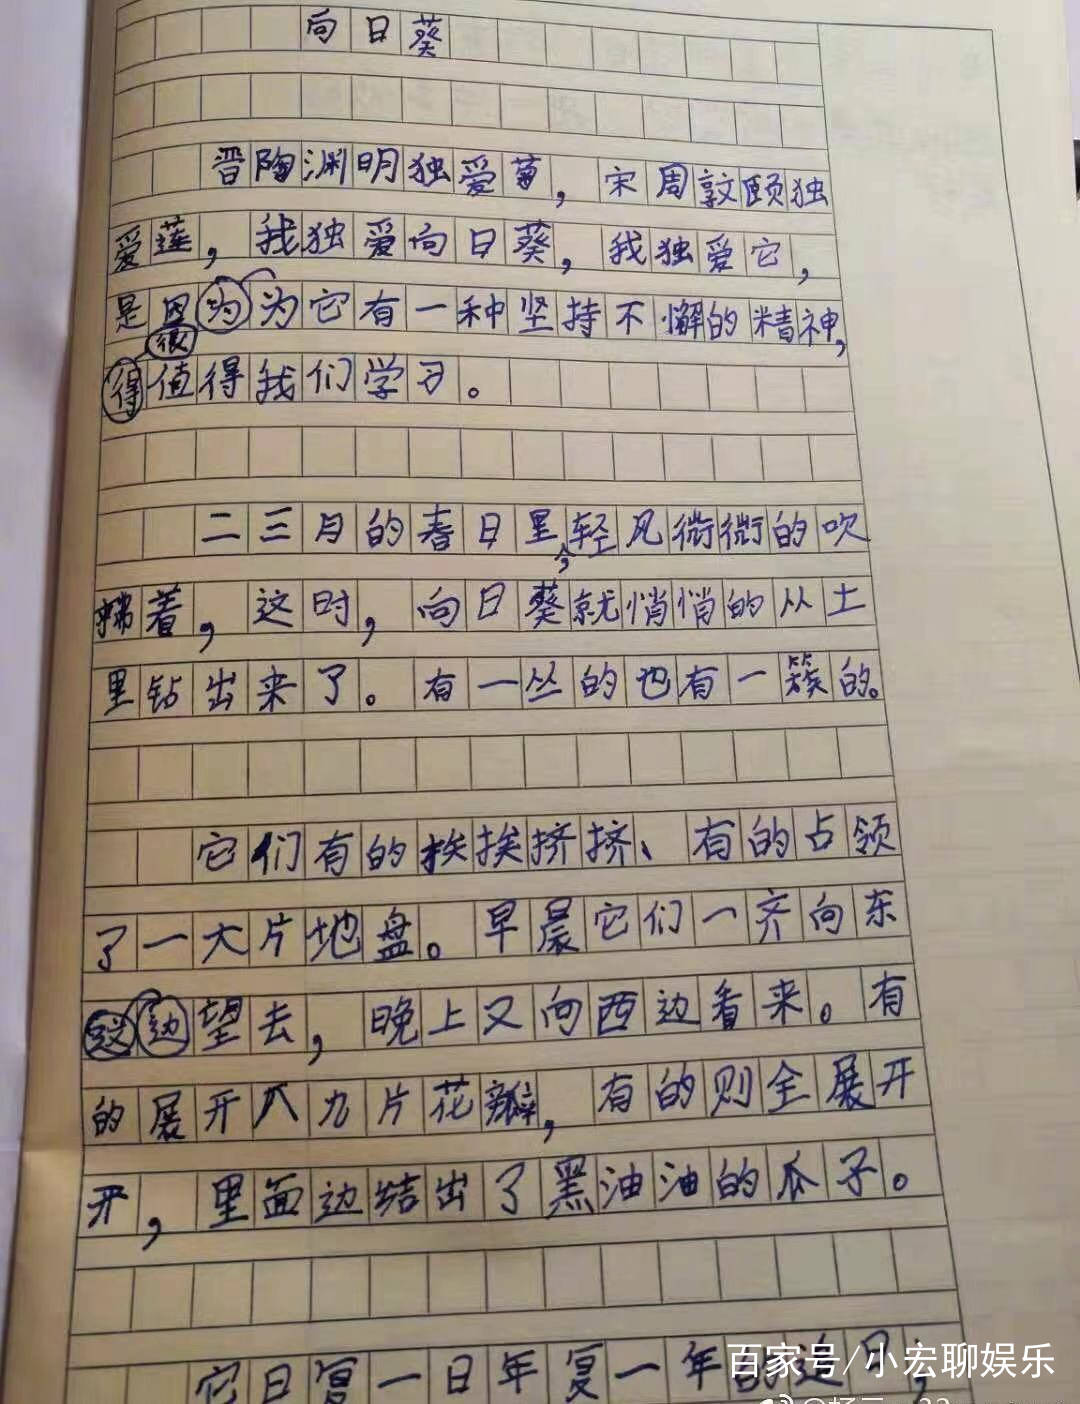 向日葵
晋陶渊明独爱菊，宋周敦颐独
爱莲，我独爱向日葵，我独爱它，
是因为为它有一种坚持不懈的精神，
很
得值得我们学习。
二三月的春日里，轻风微微的吹
拂着，这时，向日葵就悄悄的从土
里钻出来了。有一丛的也有一簇的。
它们有的挨挨挤挤、有的占领
了一大片地盘。早晨它们一齐向东
边望去，晚上又向西边看来。有
的展开八九片花瓣，有的则全展开
开，里面边结出了黑油油的瓜子。
它日复一日年复一年的追
百家号/小宏聊娱乐